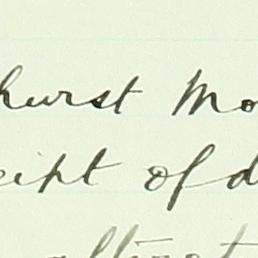 hurst Mo
eipt of d